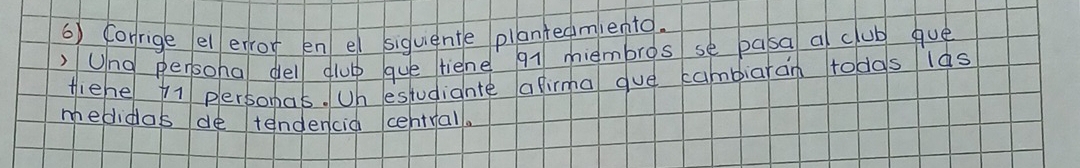 6) Corrige el error en el siguiente planteamiento.
> Una persona del club que tiene 91 miembros se pasa al club que
tiene 71 personas. Un estudiante afirma que cambiarán todas las
medidas de tendencia central.